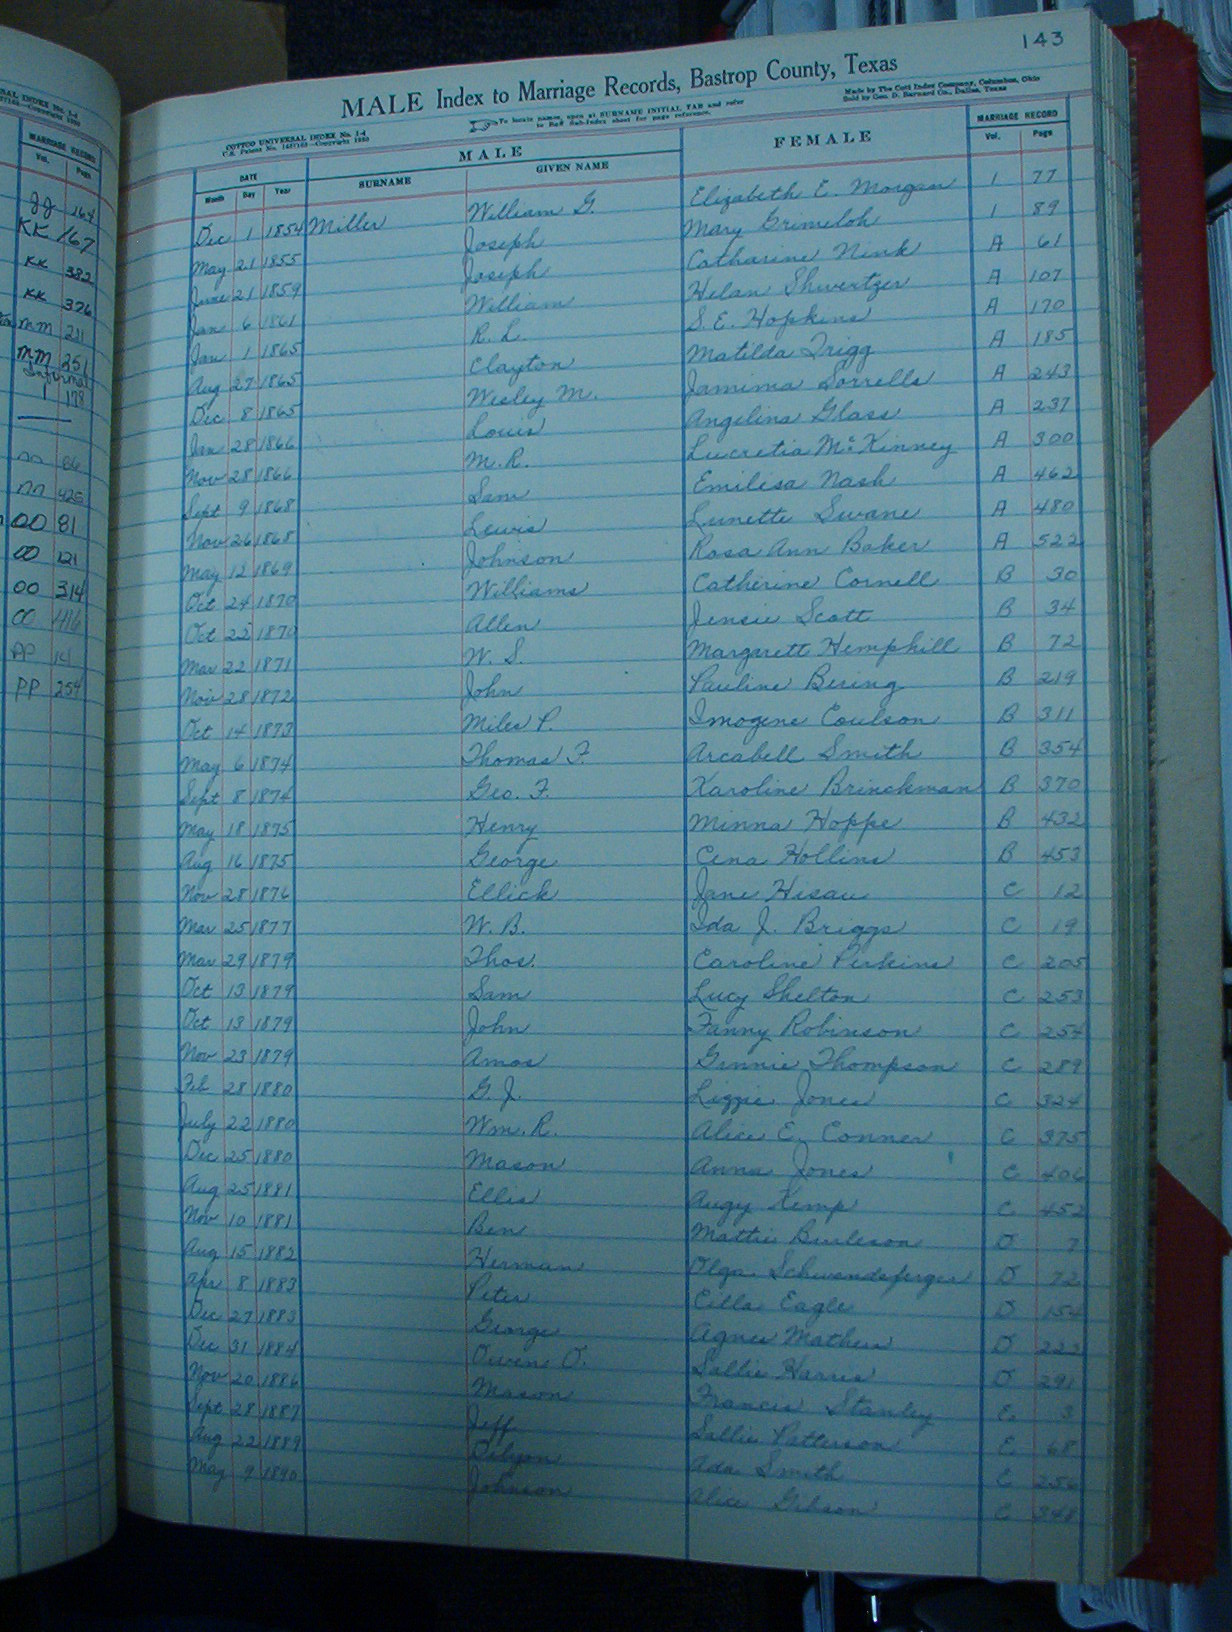 143
MALE Index to Marriage Records, Bastrop County, Texas
COTTCO UNIVERSAL INDEX No. 1-4
To locate names, open at SURNAME INITIAL TAB and refer
to Red Sub-Index sheet for page reference.
Made by The Cott Index Company, Columbus, Ohio
Sold by Geo. D. Barnard Co., Dallas, Texas
DATE MALE FEMALE MARRIAGE RECORD
Month Day Year SURNAME GIVEN NAME Vol. Page
Dec 1 1854 Miller William G. Elizabeth E. Morgan 1 77
May 21 1855 Joseph Mary Grimeloh 1 89
June 21 1859 Joseph Catharine Nink A 61
Jan 6 1861 William Helan Shwertzer A 107
Jan 1 1865 R. L. S. E. Hopkins A 170
Aug 27 1865 Clayton Matilda Trigg A 185
Dec 8 1865 Wesley M. Jamima Sorrells A 243
Jan 28 1866 Louis Angelina Glass A 237
Nov 28 1866 M. R. Lucretia McKinney A 300
Sept 9 1868 Sam Emilisa Nash A 462
Nov 26 1868 Lewis Lunette Swane A 480
May 12 1869 Johnson Rosa Ann Baker A 522
Oct 24 1870 Williams Catherine Cornell B 30
Oct 22 1870 Allen Jensie Scott B 34
Mar 22 1871 W. S. Margarett Hemphill B 72
Nov 28 1872 John Pauline Bering B 219
Oct 14 1873 Miles P. Imogene Coulson B 311
May 6 1874 Thomas F. Arcabell Smith B 354
Sept 8 1874 Geo. F. Karoline Brinckman B 370
May 18 1875 Henry Minna Hoppe B 432
Aug 16 1875 George Cena Hollins B 453
Nov 28 1876 Ellick Jane Hisaw C 12
Mar 25 1877 W. B. Ida J. Briggs C 19
Mar 29 1879 Thos. Caroline Perkins C 205
Oct 13 1879 Sam Lucy Shelton C 253
Oct 13 1879 John Fanny Robinson C 254
Nov 23 1879 Amos Ginnie Thompson C 289
Feb 28 1880 G. J. Lizzie Jones C 324
July 22 1880 Wm. R. Alice E. Conner C 375
Dec 25 1880 Mason Anna Jones C 406
Aug 25 1881 Ellis Augy Kemp C 452
Nov 10 1881 Ben Mattie Burleson D 7
Aug 15 1882 Herman Olga Schwendeferger D 72
Apr 8 1883 Peter Cilla Eagle D 154
Dec 27 1883 George Agnes Mathews D 223
Dec 31 1884 Owen O. Sallie Harris D 291
Nov 20 1886 Mason Frances Stanley E 3
Sept 28 1887 Jeff Sallie Patterson E 68
Aug 22 1889 Ada Smith E 256
May 9 1890 Johnson Alice Gibson E 348
MARRIAGE RECORD
Vol. Page
JJ 164
KK 167
KK 382
KK 376
MM 211
MM 251
Informal
1 178
nn 66
nn 425
OO 81
OO 121
OO 314
OO 416
PP 14
PP 254